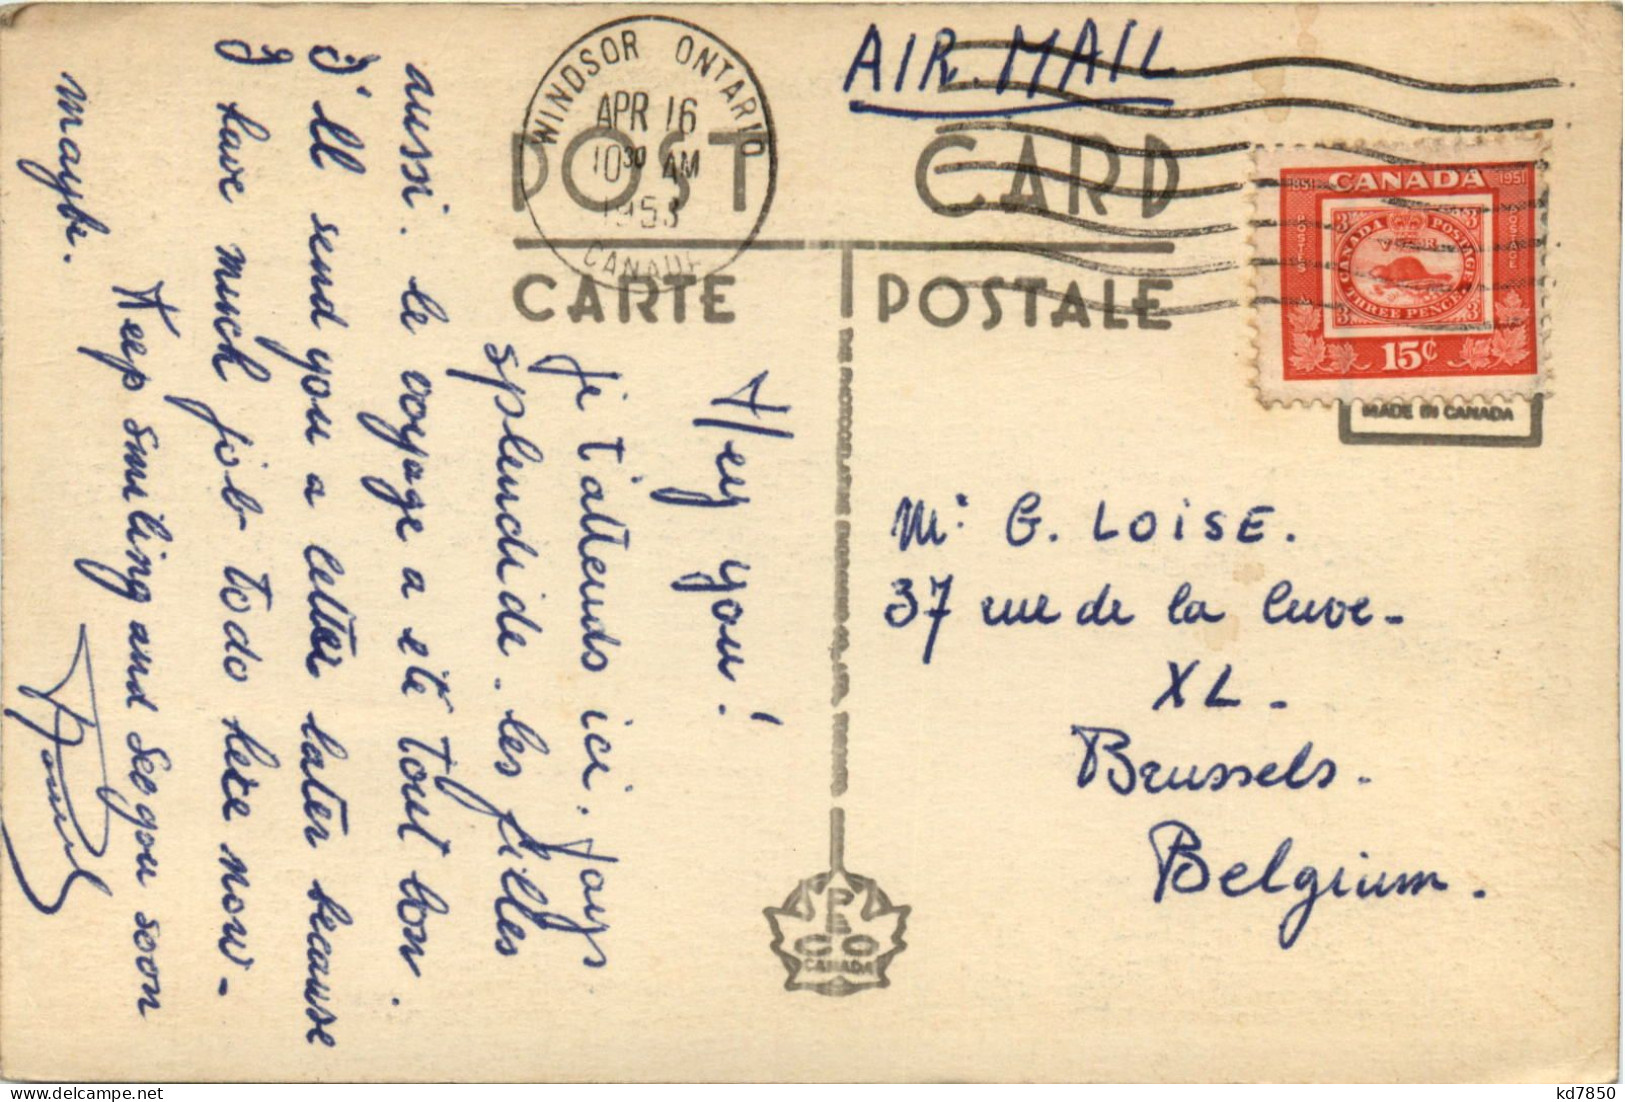 AIR MAIL
WINDSOR ONTARIO
APR 16
10 30 AM
1953
CANADA
POST CARD
CARTE POSTALE
CANADA
1851 1951
POSTES POSTAGE
CANADA POSTAGE
3 3
V R
THREE PENCE
3 3
15¢
MADE IN CANADA
Hey you!
je t'attends ici. pays
splendide. les filles
aussi. le voyage a été tout bon.
I'll send you a letter later because
I have much job to do here now-
maybe.
Keep smiling and see you soon
Mr G. LOISE.
37 rue de la Cuve-
XL-
Brussels.
Belgium.
PECO
CANADA
kd7850